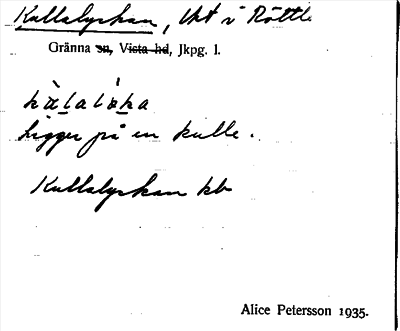 Kullalyckan, lht i Röttle
Gränna sn, Vista hd, Jkpg. l.
Ligger på en kulle.
Kullalyckan kb
Alice Petersson 1935.